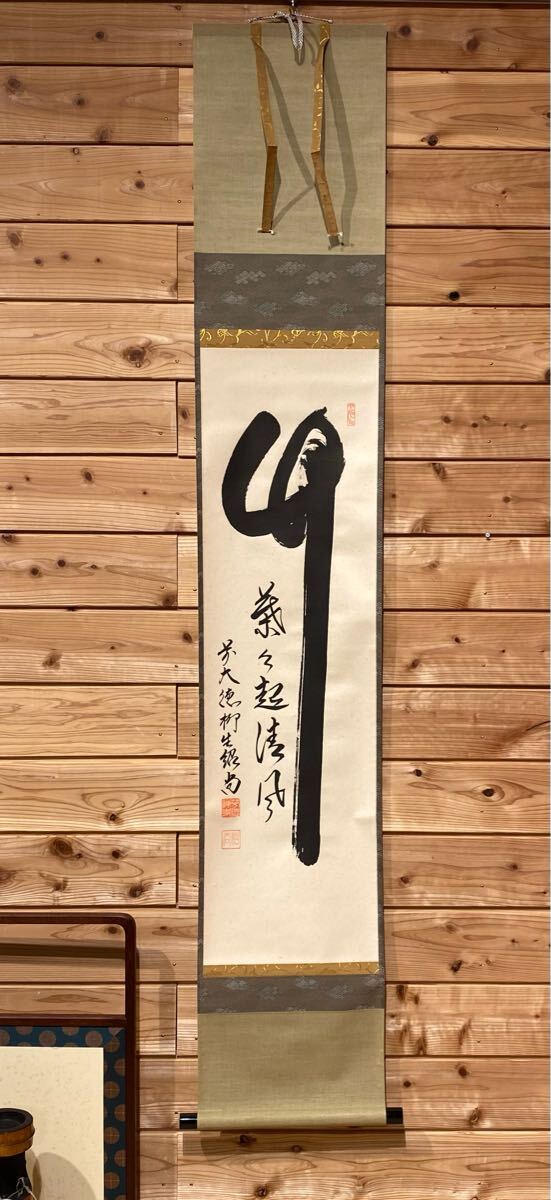 竹
葉々起清風
前大徳柳生紹尚